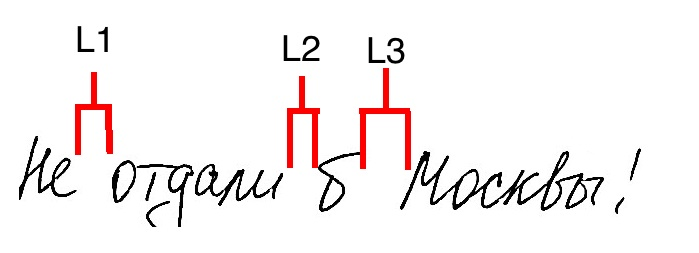 L1 L2 L3
Не отдали б Москвы!